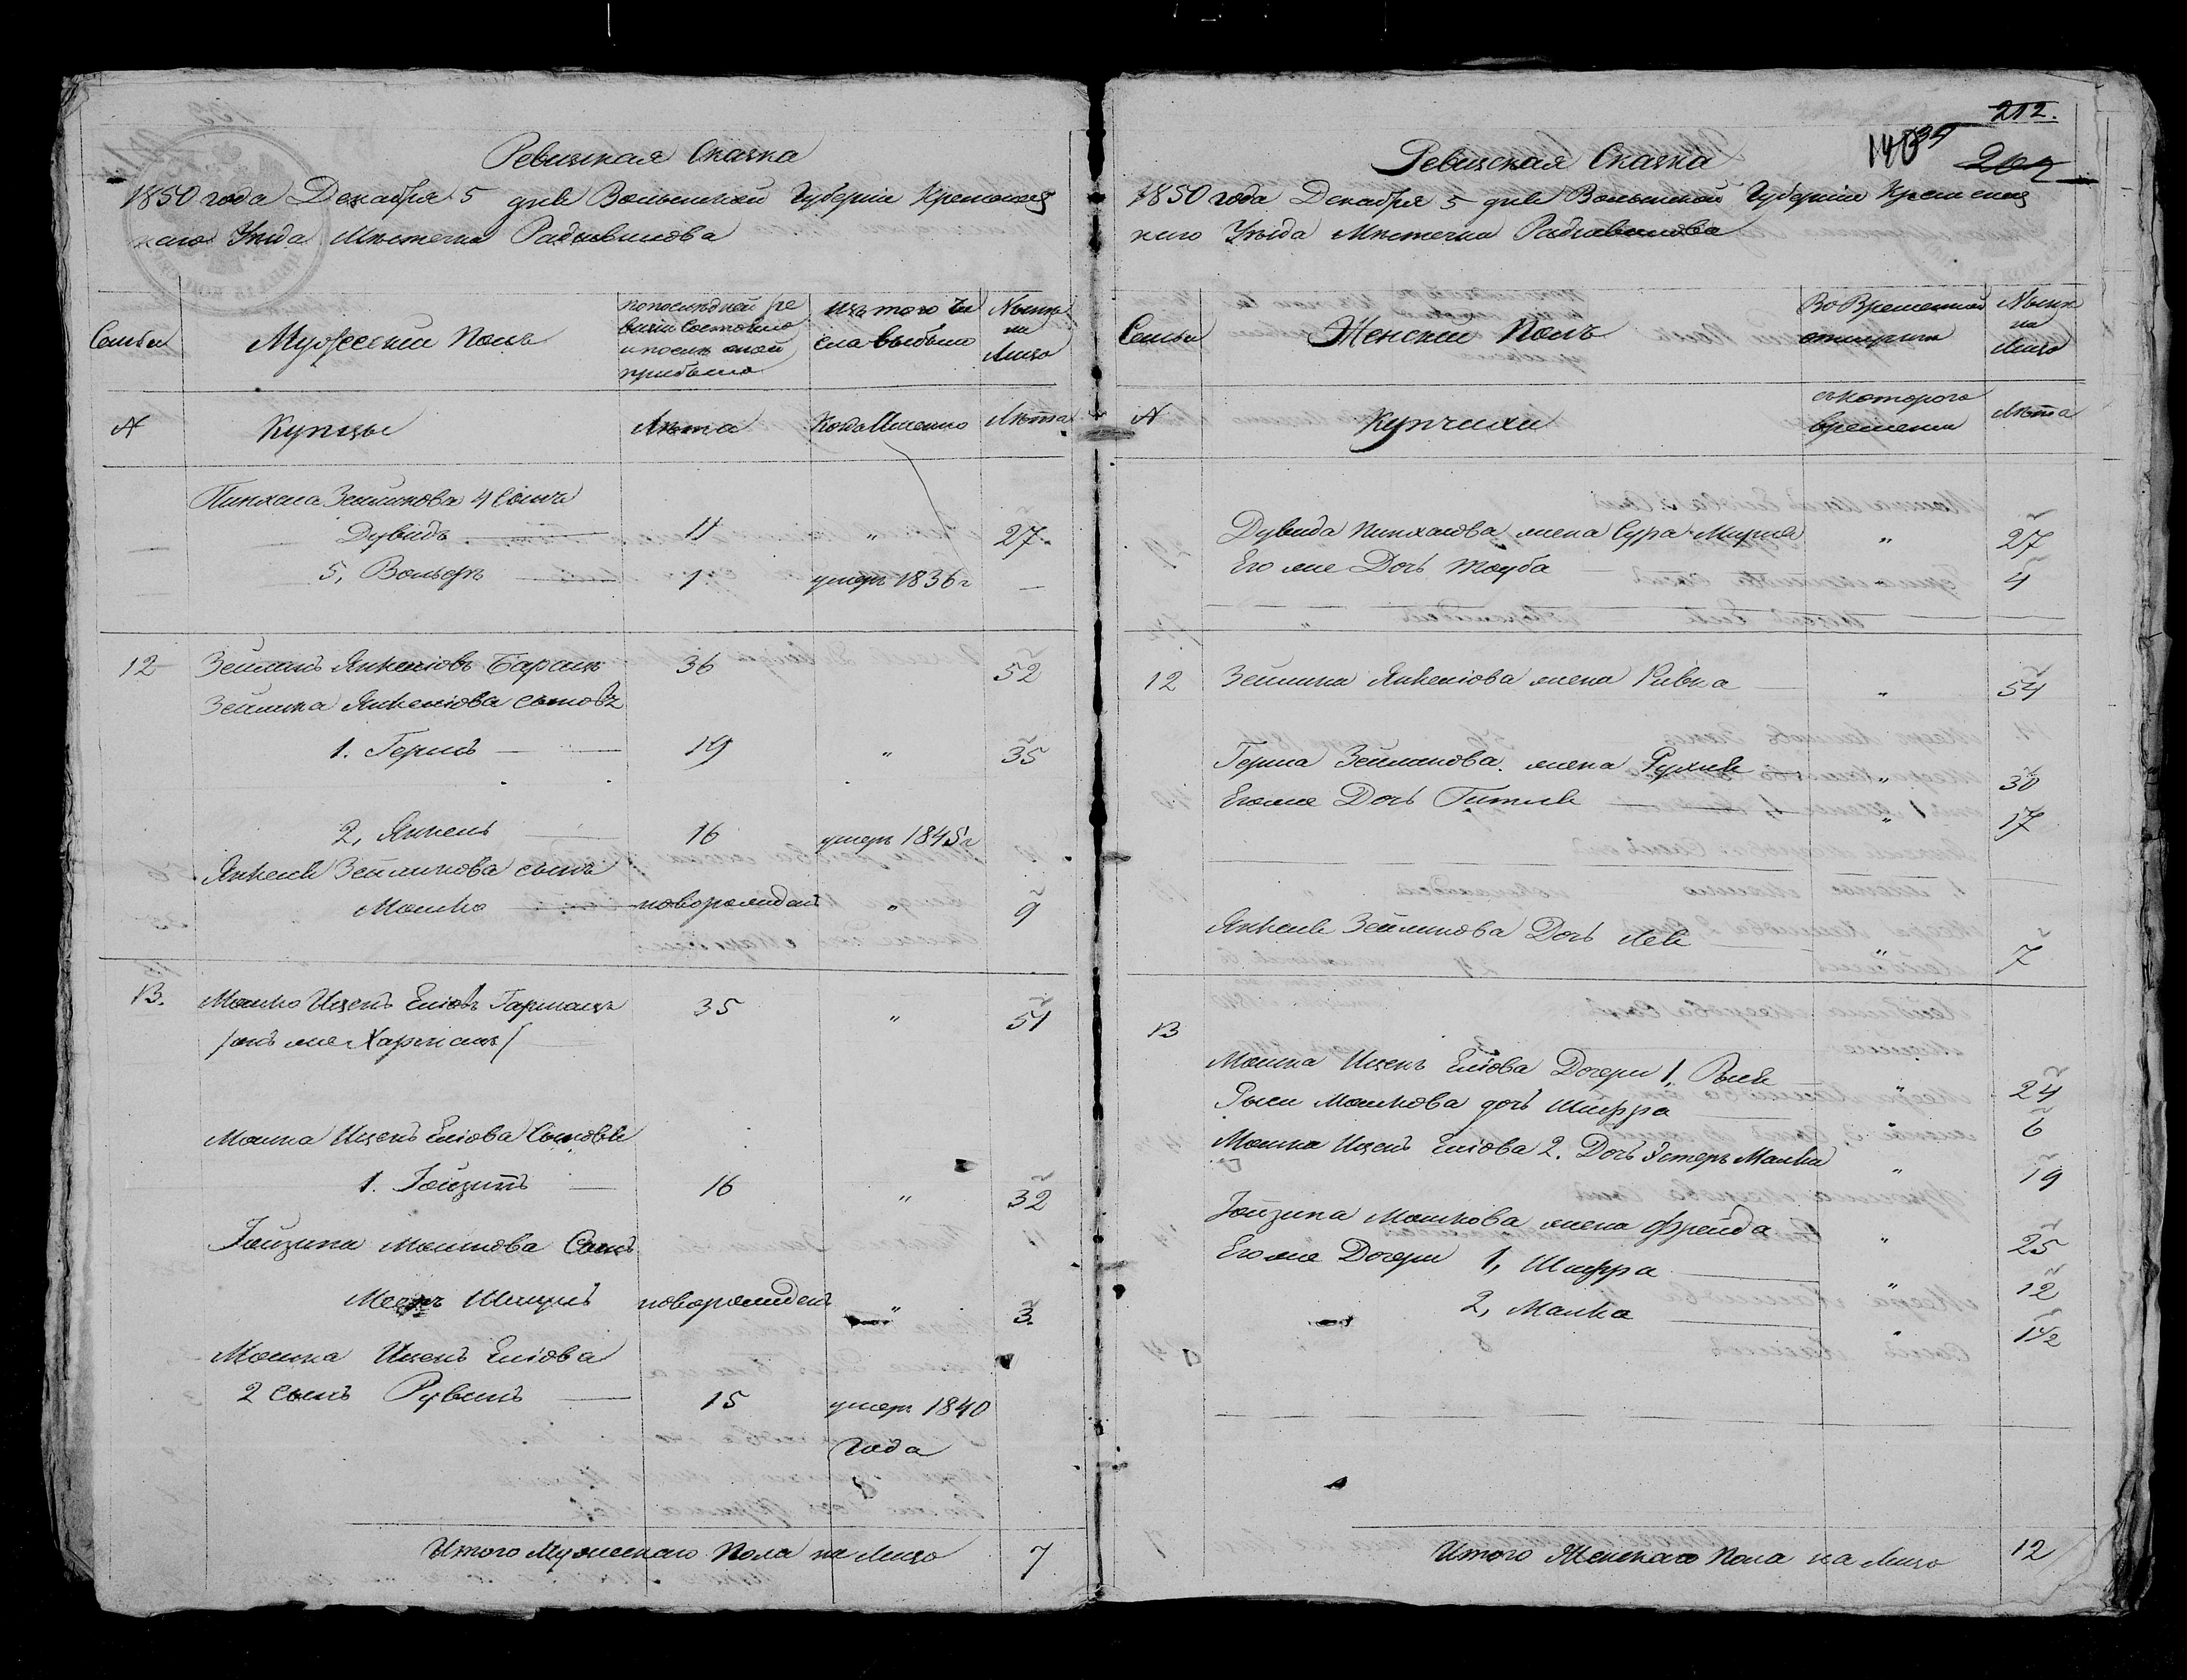 Ревизская Сказка
1850 года Декабря 5 дня Волынской Губерніи Кременец
каго Уезда Местечка Радзивилова
Семьи
Мужескій Полъ
по последней ре
визіи Состояло
и после оной
прибыло
Изъ того Чи
сла выбыло
Ныне
на
Лицо
№
Купцы
Лета
Когда Именно
Лета
Пинхаса Зейликова 4 Сынъ
Дувидъ 11 " 27
5, Вольфъ 1 умеръ 1836 г —
12 Зейликъ Янкеліовъ 36 52
Зейлика Янкеліова сыновья
1. Гершъ 19 " 35
2, Янкель 16 умеръ 1845 г
Янкеля Зейликова сынъ
Мошко новорожденъ " 9
13. Мошко Ицекъ Еліовъ 35 " 51
Мошка Ицекъ Еліова Сыновья
1. Іойзипъ 16 " 32
Іойзипа Мошкова Сынъ
новорожденъ " 3
Мошка Ицекъ Еліова
2 Сынъ Рувинъ 15 умеръ 1840
года
Итого Мужескаго Пола на Лицо 7
212.
Ревизская Сказка
1850 года Декабря 5 дня Волынской Губерніи Кременец
каго Уезда Местечка Радзивилова
Семьи
Женскій Полъ
Во Временной
отлучке
Ныне
на
Лицо
№
Купчихи
съ котораго
времени
Лета
Дувида Пинхасова жена Сура Мирля " 27
Его же Дочь Тауба 4
12 Зейлика Янкеліова жена Ривка " 54
Герша Зейликова жена Рухля " 30
Его же Дочь Гитля " 17
Янкеля Зейликова Дочь Лея " 7
13
Мошка Ицекъ Еліова Дочери 1, Рыся " 24
Рыси Мошкова дочь Шифра " 6
Мошка Ицекъ Еліова 2. Дочь Эстеръ Малка " 19
Іойзипа Мошкова жена Фрейда " 25
Его же Дочери 1, Шифра " 12
2, Малка " 1 1/2
Итого Женскаго Пола на Лицо 12